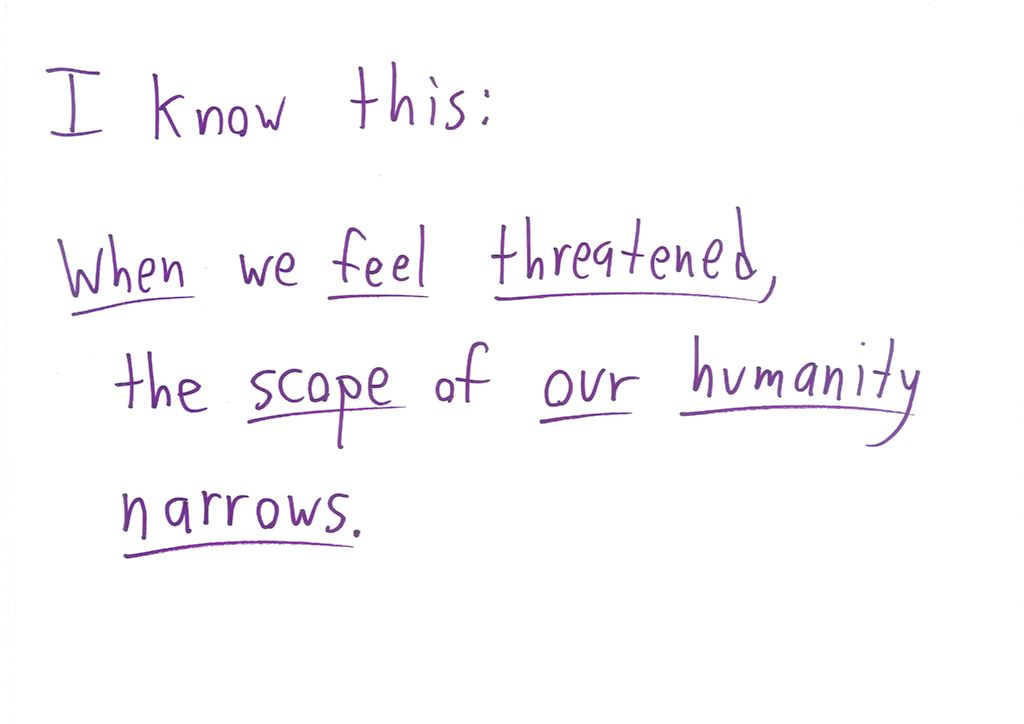 I know this:
When we feel threatened,
the scope of our humanity
narrows.